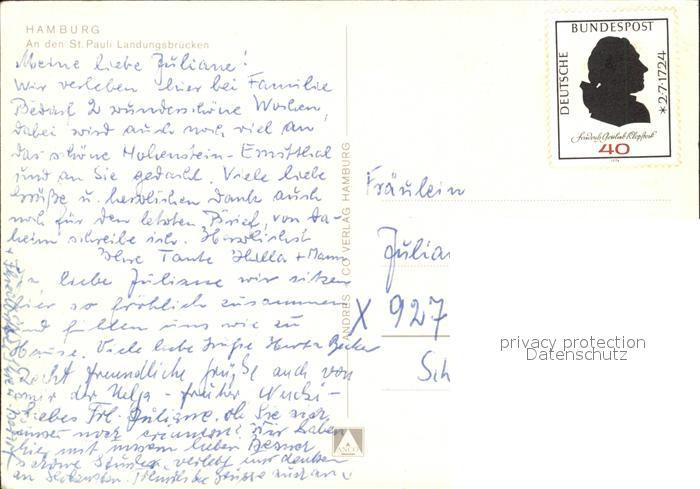 HAMBURG
An den St. Pauli Landungsbrücken
Meine liebe Juliane!
Wir verleben hier bei Familie
2 wunderschöne Wochen,
dabei wird auch noch viel an
das schöne Hohenstein-Ernstthal
und an Sie gedacht. Viele liebe
Grüße u. herzlichen Dank auch
noch für den letzten Brief, von da-
heim schreibe ich. Herzlichst
Ihre Tante Hella + Mann
liebe Juliane wir sitzen
hier so fröhlich zusammen
und fühlen uns wie zu
Hause. Viele liebe Grüße Herta Becker
Recht freundliche Grüße auch von
der Helga - früher
Liebes Frl. Juliane, ob Sie sich
noch Wir haben
hier mit unserem lieben Besuch
schöne Stunden verlebt und denken
an
ANDRES + CO VERLAG HAMBURG
ANCO
DEUTSCHE BUNDESPOST
* 2·7·1724
Friedrich Gottlieb Klopstock
40
Fräulein
Julia
X 927
Sch
privacy protection
Datenschutz